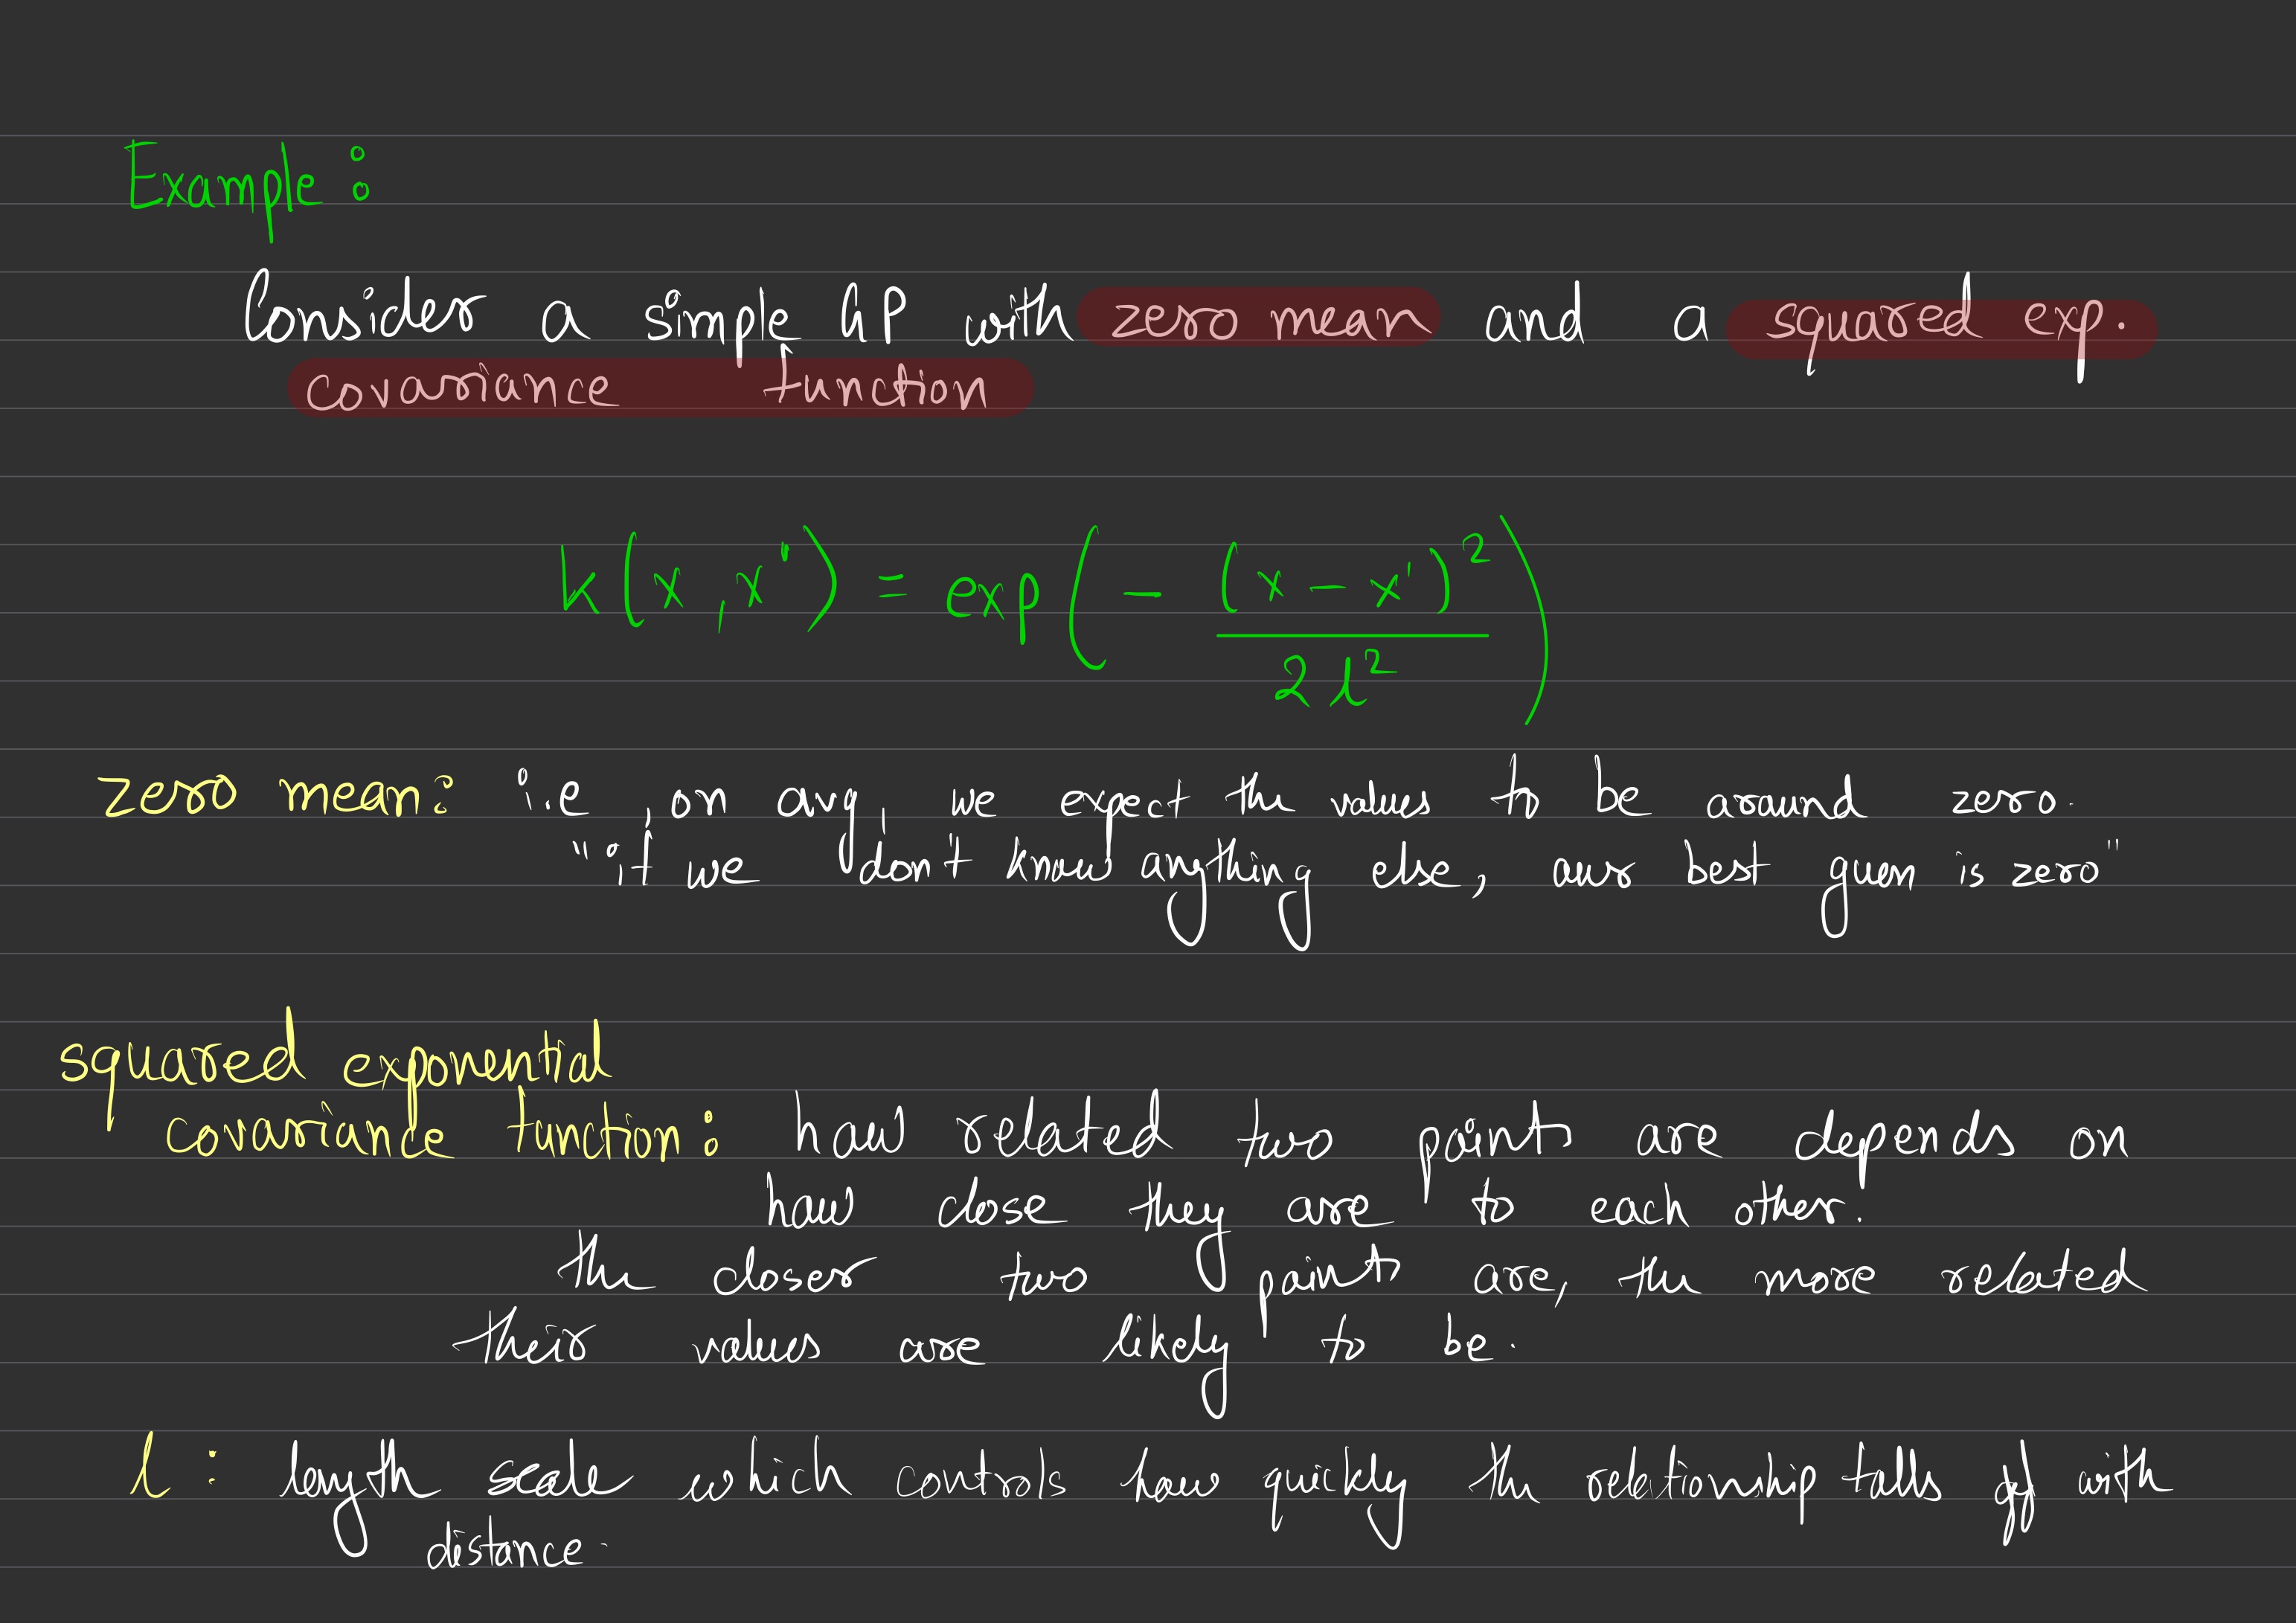 Example :
Consider a simple GP with zero mean and a squared exp.
covariance function
k(x, x'') = exp(- (x - x')² / 2l²)
zero mean: i.e, on avg, we expect the values to be around zero.
"if we don't know anything else, our best guess is zero"
squared exponential
covariance function: how related two points are depends on
how close they are to each other.
the closer two points are, the more related
their values are likely to be.
l : length scale which controls how quickly the relationship falls off with
distance.